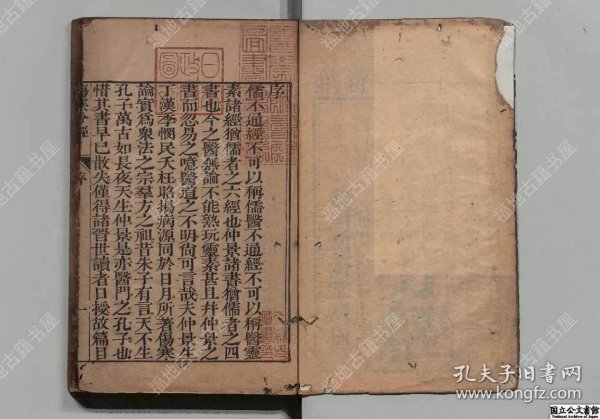 序
儒不通經不可以稱儒醫不通經不可以稱醫靈
素諸經猶儒者之六經也仲景諸書猶儒者之四
書也今之醫無論不能熟玩靈素甚且并仲景之
書而忽易之噫醫道之不明尙可言哉夫仲景生
丁漢季憫民夭枉昭揭病源同於日月所著傷寒
論實爲衆法之宗羣方之祖昔朱子有言天不生
孔子萬古如長夜天生仲景是亦醫門之孔子也
惜其書早已散失僅得諸管世讀者口授故篇目
傷寒分經
序
一
日
圖
福地古籍书屋
孔夫子旧书网
www.kongfz.com
国立公文書館
National Archives of Japan